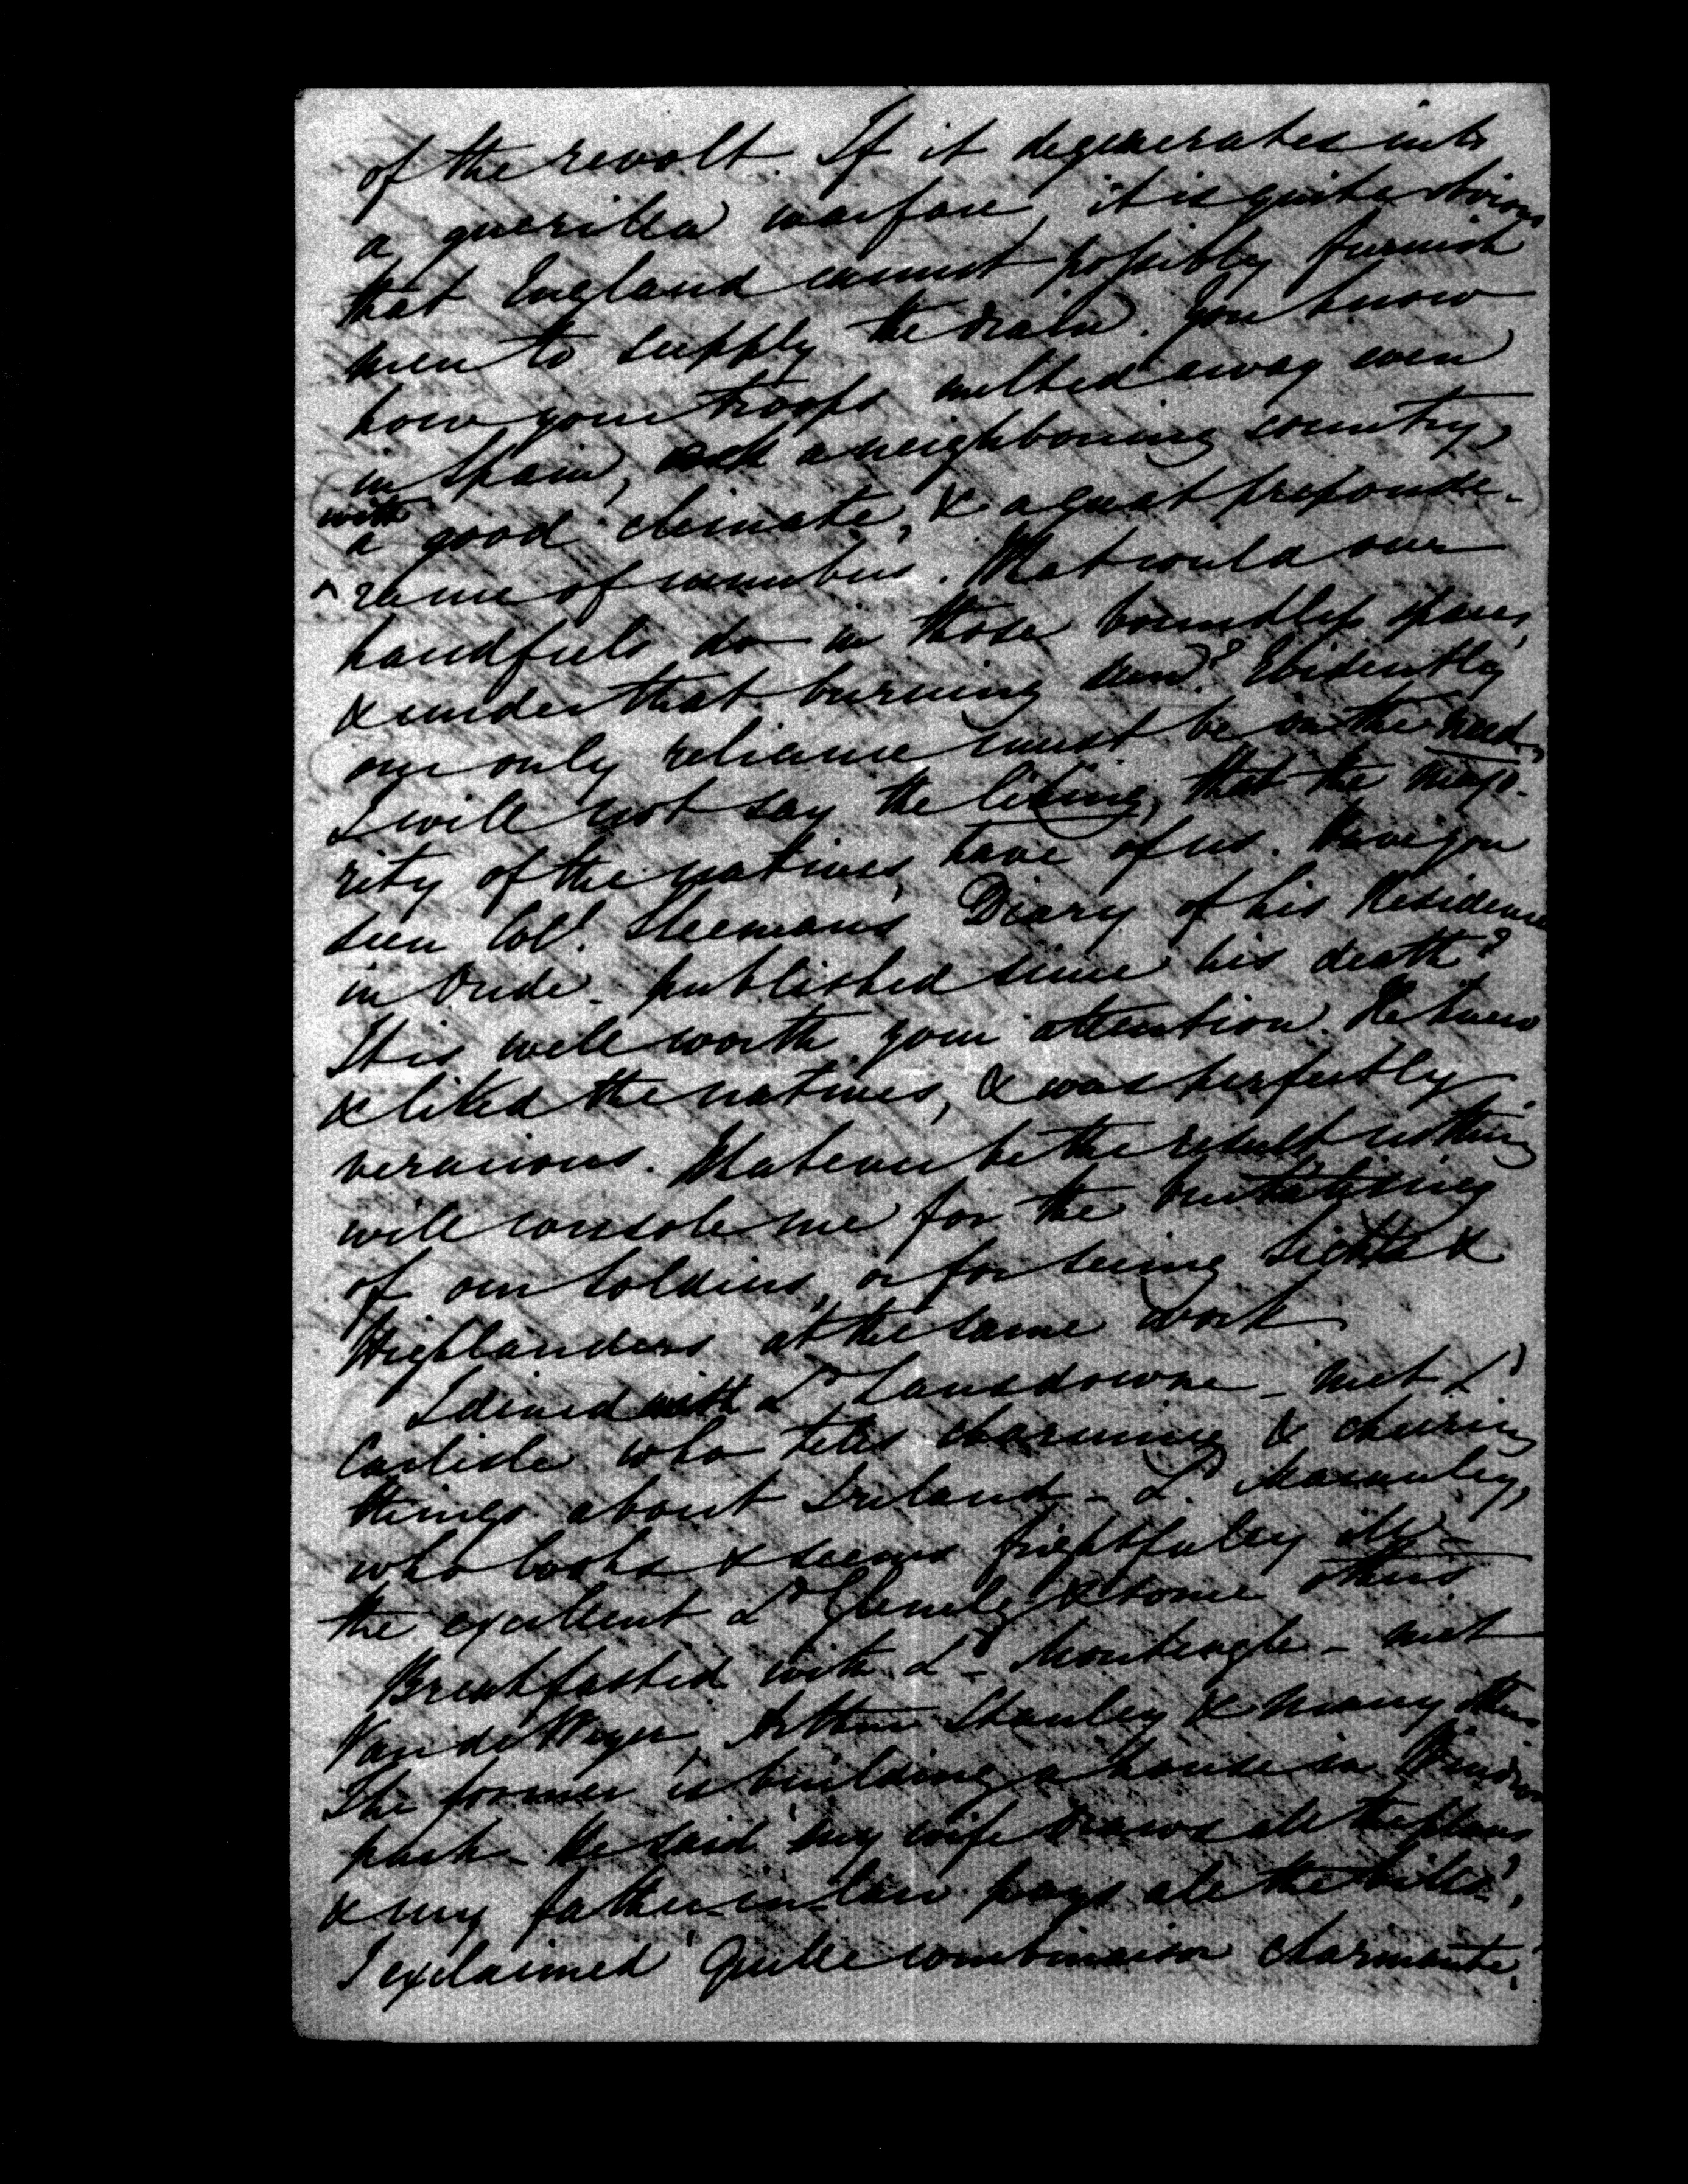 of the revolt. If it degenerates into
a guerilla warfare, it is quite obvious
that England cannot possibly furnish
men to supply the drain. You know
how your troops melted away even
in Spain, a neighbouring country,
with
a good climate, & a great preponde-
^ rance of numbers. What could our
handfuls do in those boundless spaces,
& under that burning sun? Evidently
our only reliance must be on the need,
I will not say the liking, that the majo-
rity of the natives, have of us. Have you
seen Col. Sleeman's Diary of his Residence
in Oude - published since his death?
It is well worth your attention. He knew
& liked the natives, & was perfectly
veracious. Whatever be the result nothing
will console me for the brutalising
of our soldiers, or for seeing Sikhs &
Highlanders at the same work.
I dined with Ld Lansdowne - met Ld
Carlisle who tells charming & cheering
things about Ireland - Ld. Macaulay,
who looks & seems frightfully ill -
the excellent Ld Glenelg & some others
Breakfasted with Ld Monteagle - met
Van de Weyer, Arthur Stanley & many others
The former is building a house in Windsor
park - He said 'my wife draws all the plans
& my father-in-law pays all the bills',
I exclaimed 'Quelle combinaison charmante!'